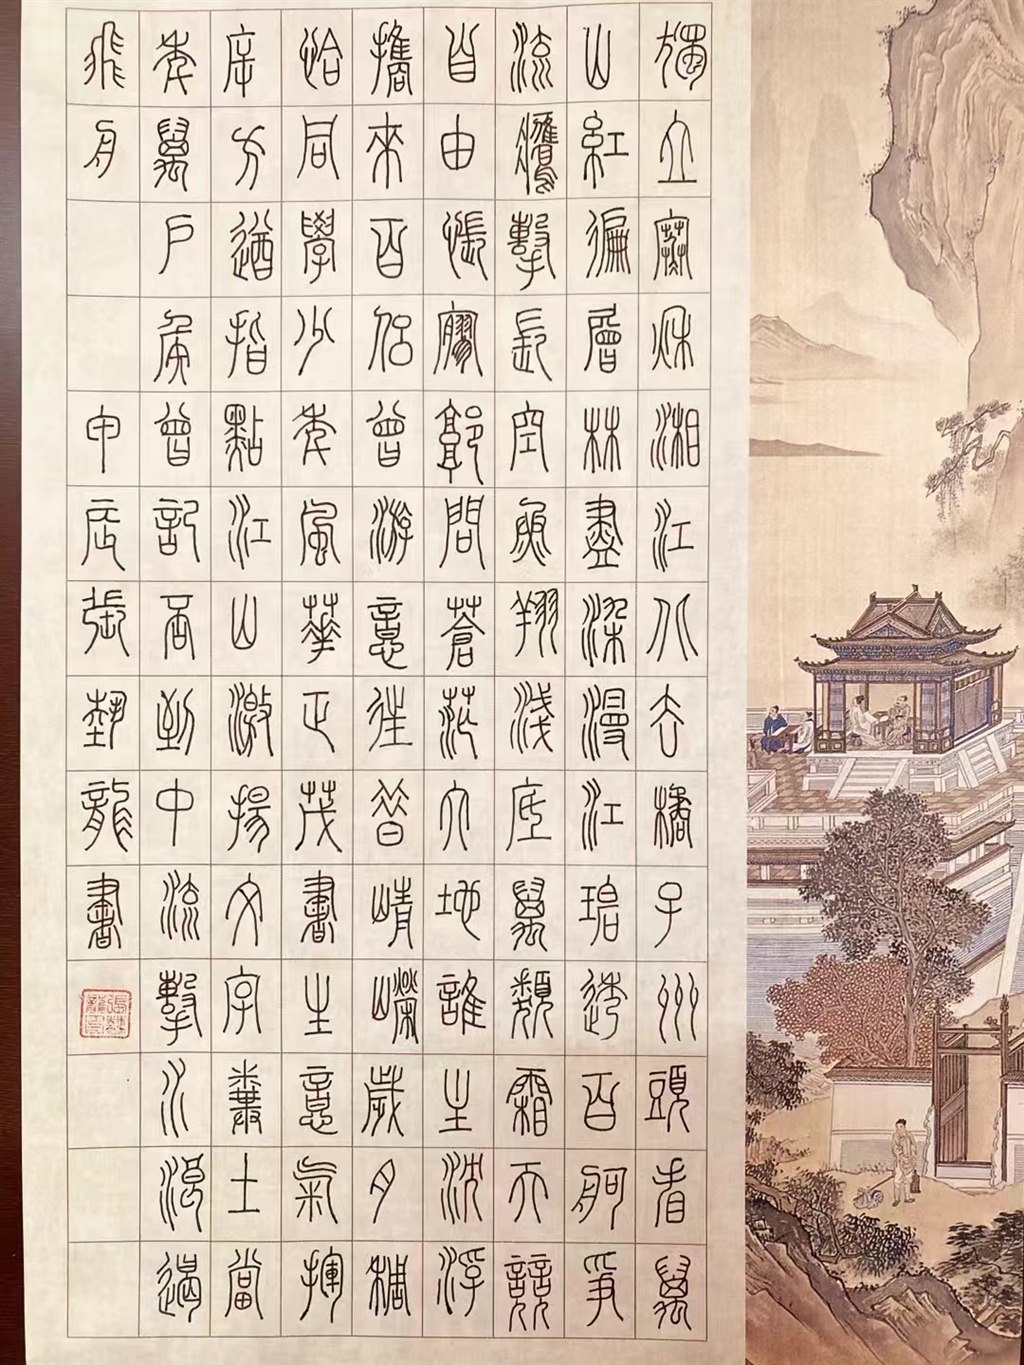 獨立寒秋湘江北去橘子州頭看萬
山紅遍層林盡染漫江碧透百舸爭
流鷹擊長空魚翔淺底萬類霜天競
自由悵寥廓問蒼茫大地誰主沈浮
攜來百侶曾游憶往昔崢嶸歲月稠
恰同學少年風華正茂書生意氣揮
斥方遒指點江山激揚文字糞土當
年萬戶侯曾記否到中流擊水浪遏
飛舟
甲辰張龍書